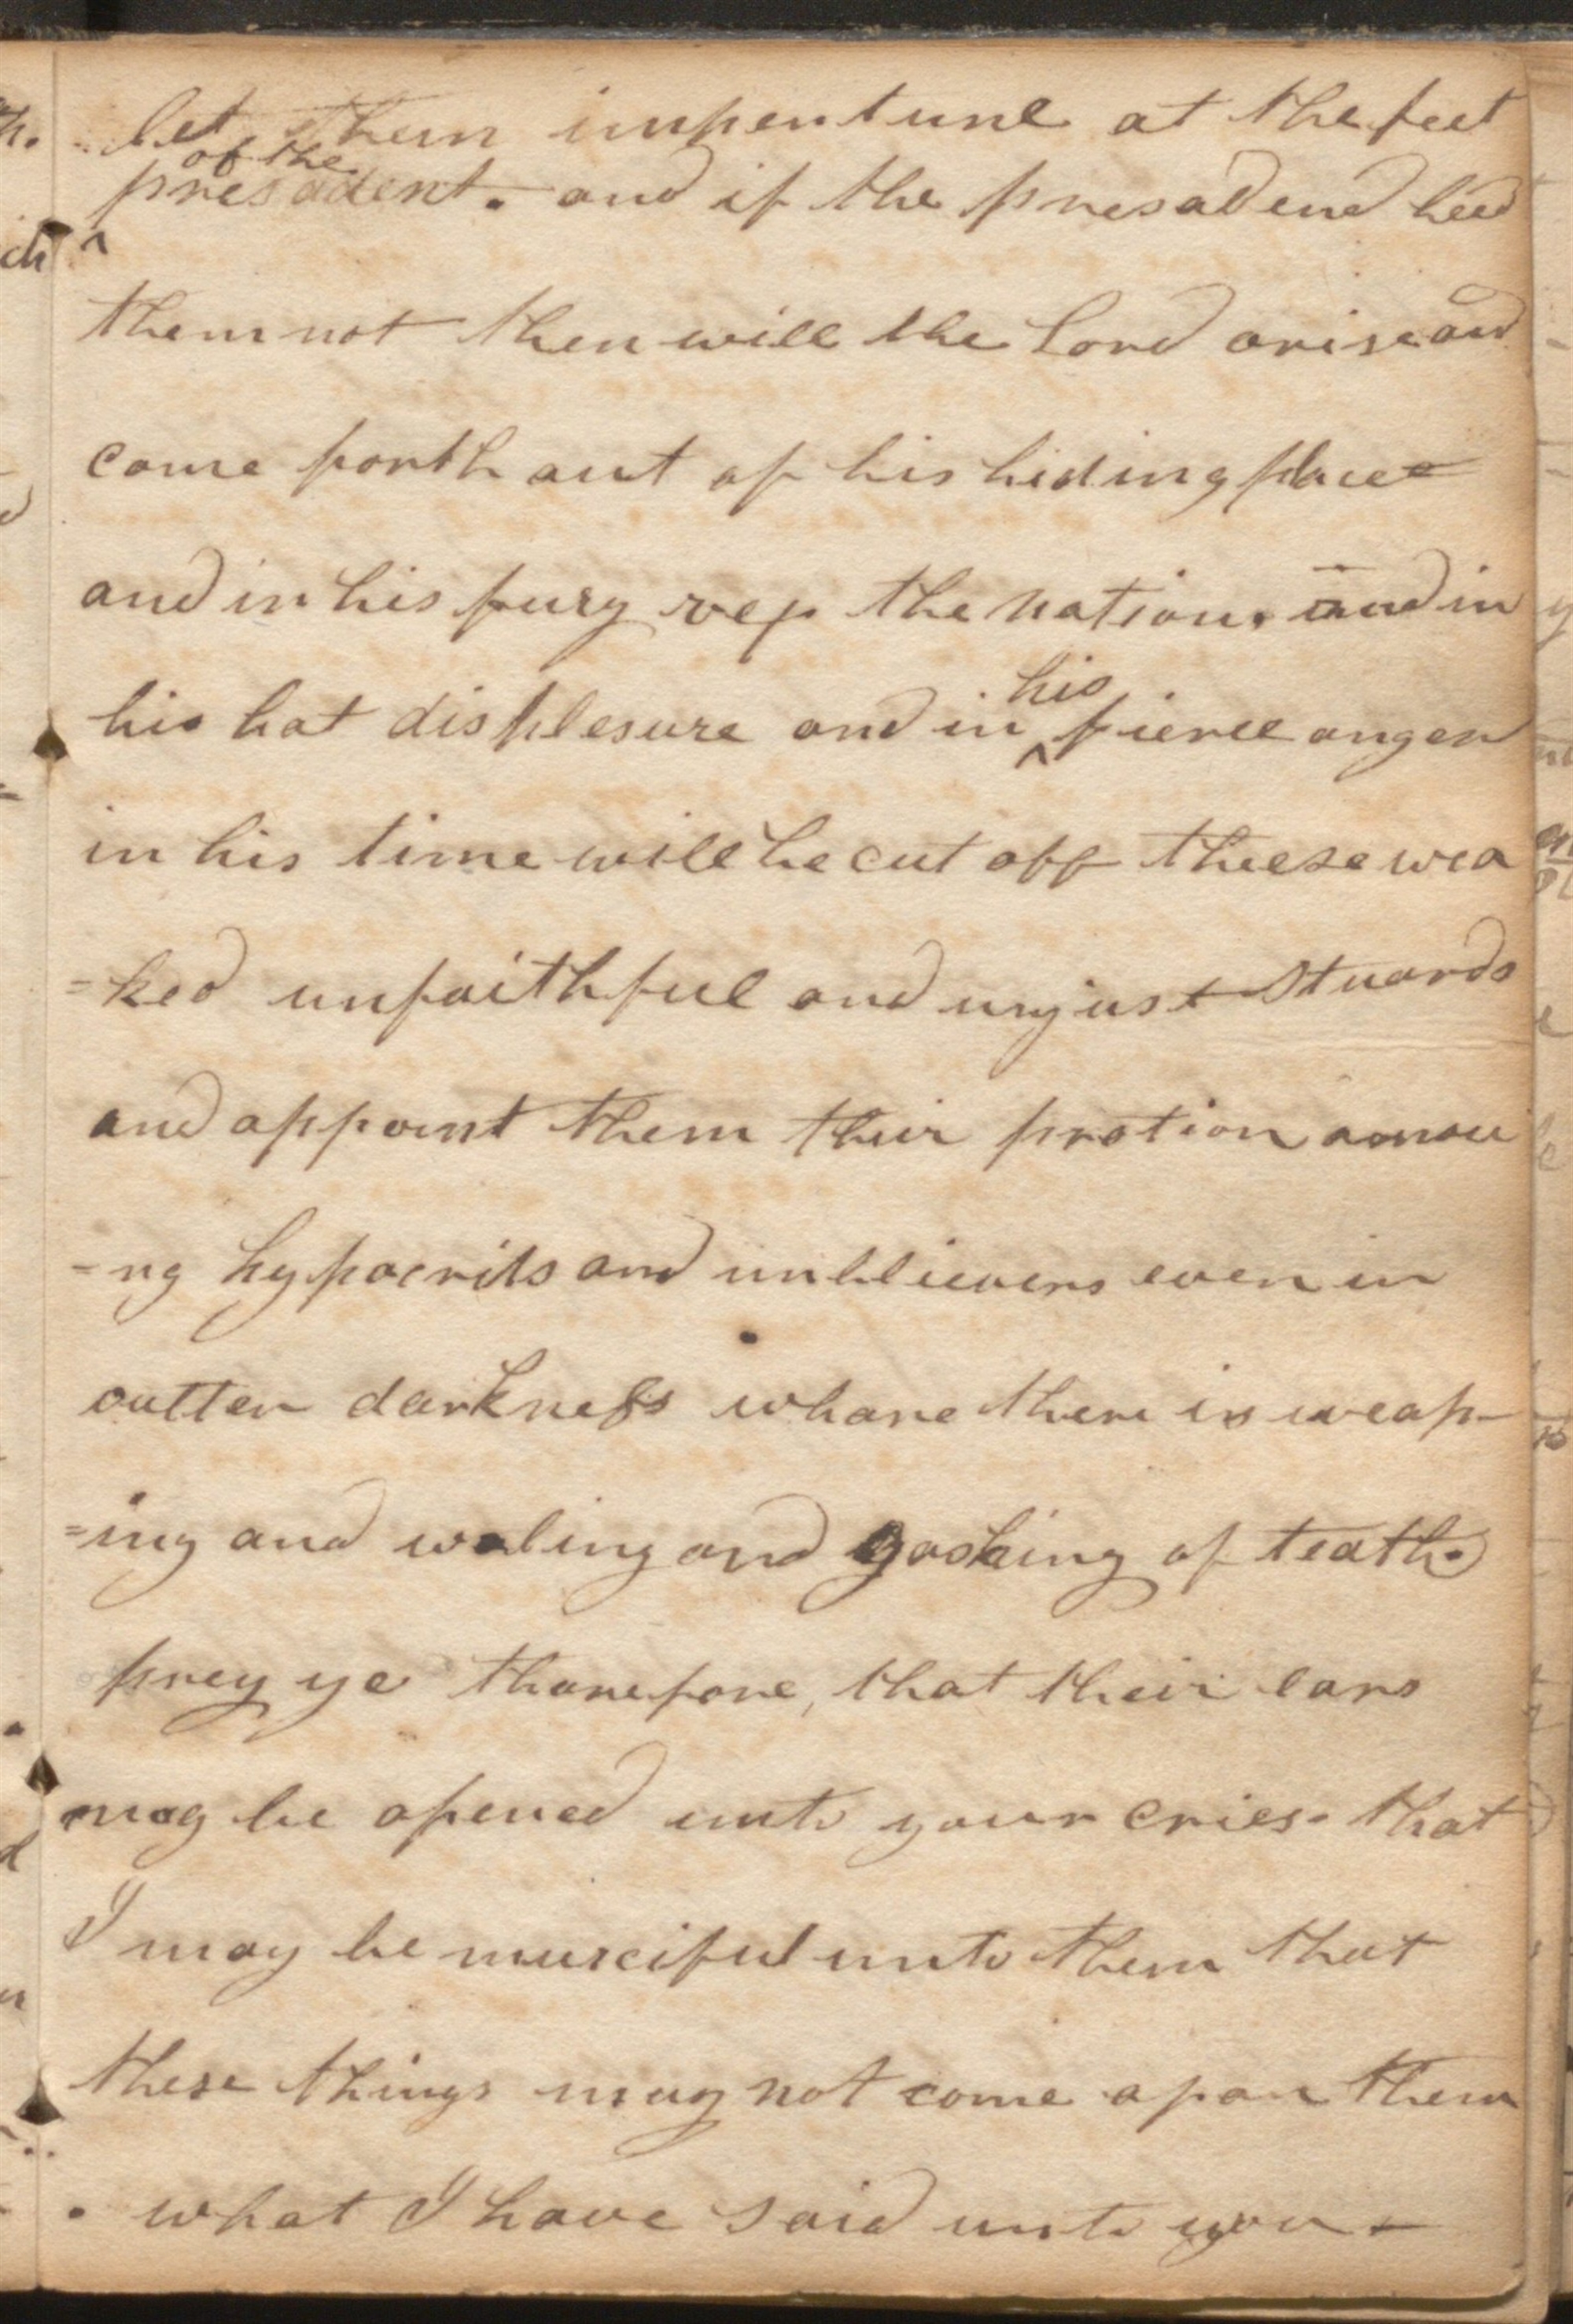 let them impentune at the feet
of the
presadent. and if the presadend heed
them not then will the Lord arise and
come forth out of his hiding place
and in his fury vex the nation. and in
his hot displesure and in his fierce anger
in his time will he cut off theese wea
=ked unfaithful and unjust Stuards
and appoint them their protion amou
=ng hypocrits and unblievers even in
outter darkness whare there is weap-
=ing and waling and gashing of teath.
prey ye tharefore, that their ears
may be opened unto your cries. that
I may be murciful unto them that
these things may not come apon them
. what I have Said unto you